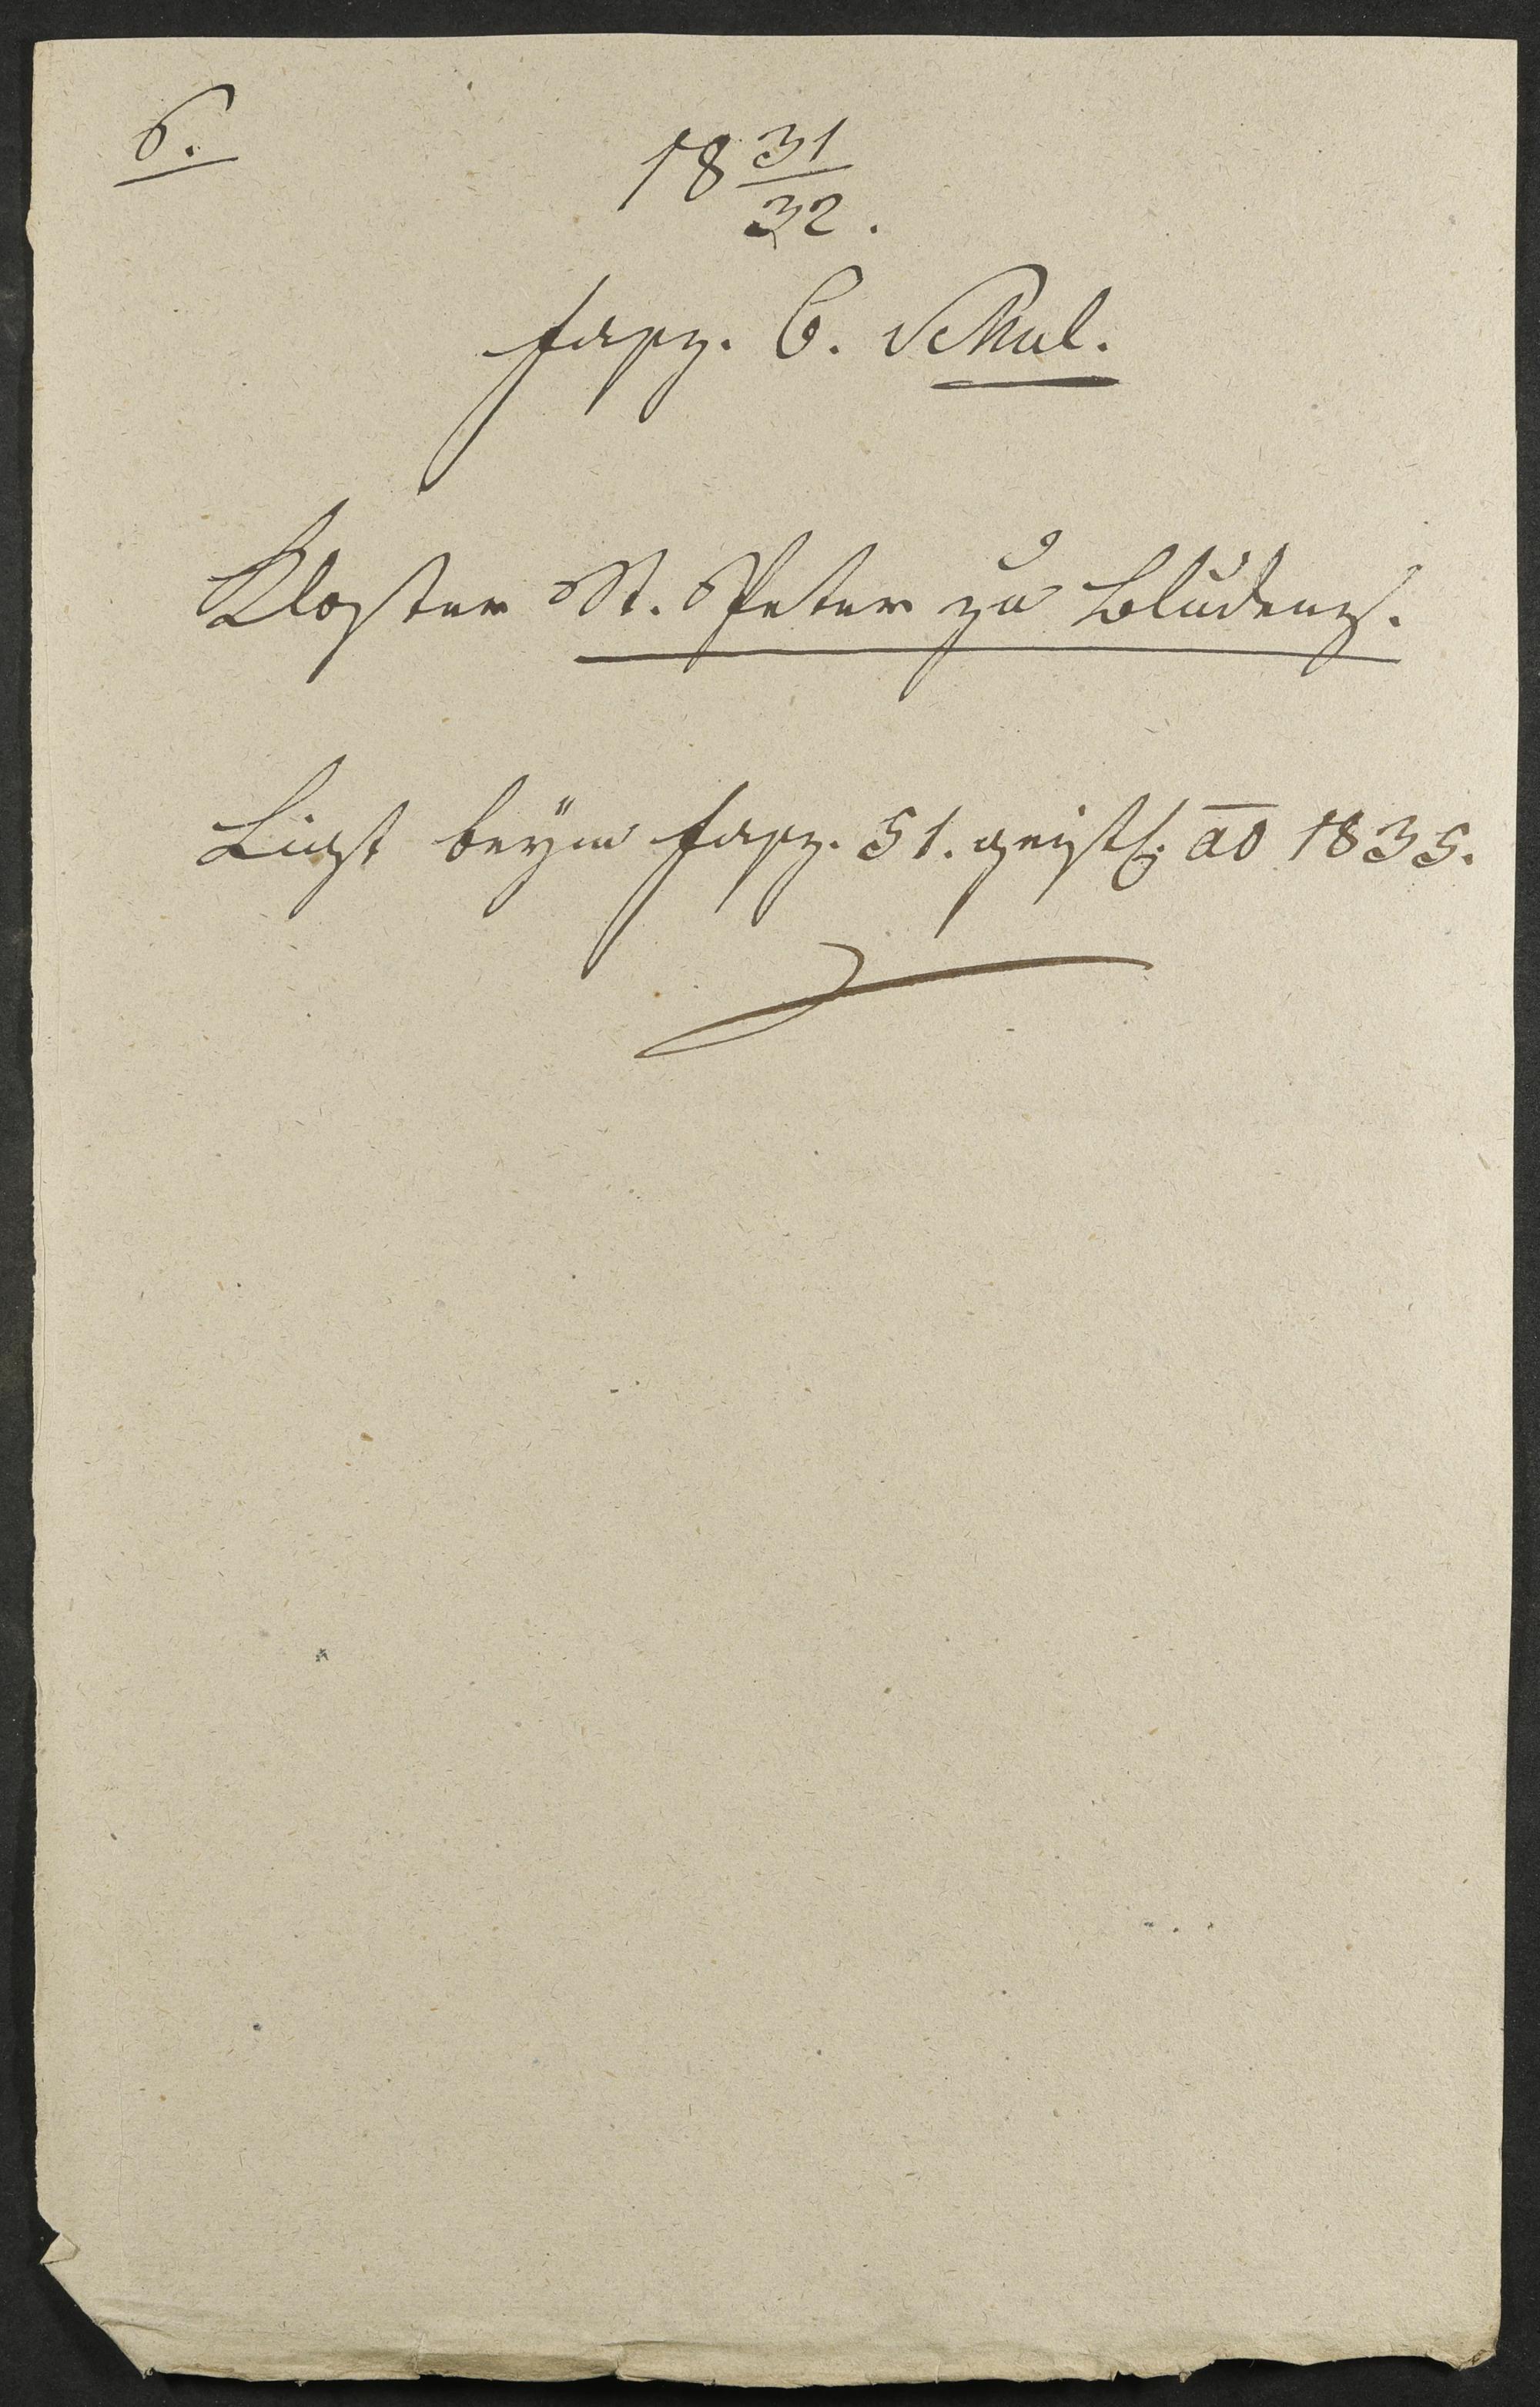 6.
18 31/32.
Fasz. 6. Schul.
Kloster St. Peter zu Bludenz.
Liegt beÿm Fasz. 51. geistl. ao 1835.